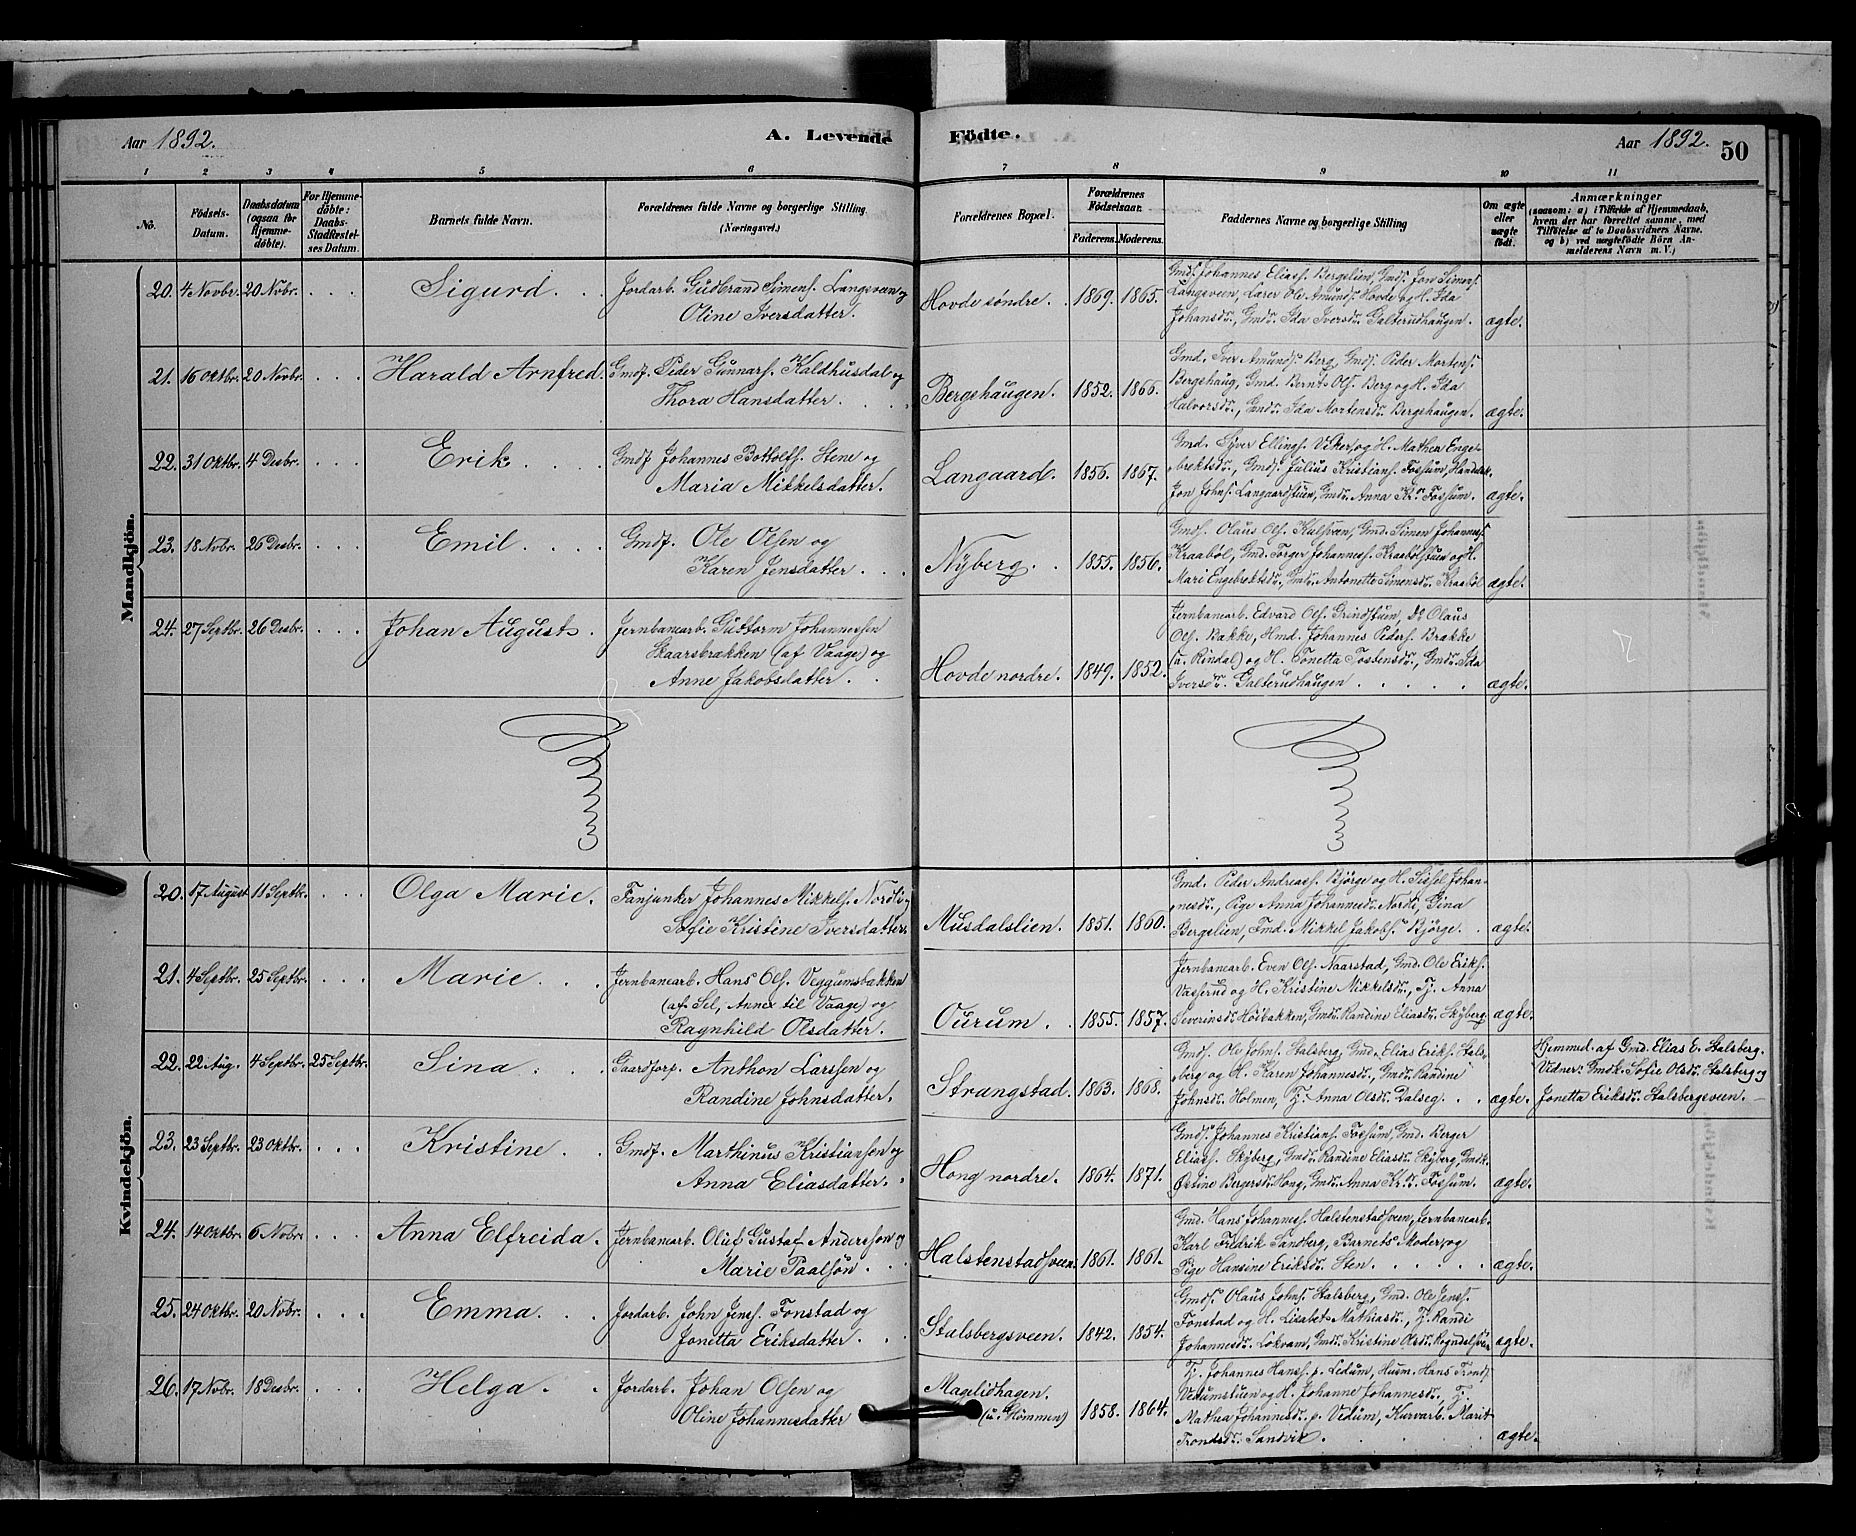 Aar 1892.
A. Levende
Födte.
Aar 1892.
50
1 2 3 4 5 6 7 8 9 10 11
No.
Födsels-
Datum.
Daabsdatum
(ogsaa for
Hjemme-
döbte).
For Hjemme-
döbte:
Daabs-
Stadfæstel-
ses Datum.
Barnets fulde Navn.
Forældrenes fulde Navne og borgerlige Stilling
(Næringsvei.)
Forældrenes Bopæl.
Forældrenes
Födselsaar.
Faderens. Moderens.
Faddernes Navne og borgerlige Stilling
Om ægte
eller
uægte
födt.
Anmærkninger
(saasom: a) i Tilfælde af Hjemmedaab,
hvem der har forrettet samme, med
Tilföielse af to Daabsvidners Navne.
og b) ved uægtefödte Börn An-
melderens Navn m. V.)
Mandkjön.
20. 4 Novbr. 20 Novbr. Sigurd. Jordarb. Gudbrand Simens. Langsveen og
Oline Iversdatter.
Hovde søndre. 1869. 1865.
Gmds. Johannes Eliass. Bergelien, Gmds. Jon Simens.
Langsveen, Lærer Ole Amunds. Hovde og H. Ida
Johansdr., Gmdr. Ida Iversdr. Galterudhaugen. ægte.
21. 16 Oktbr. 20 Novbr. Harald Arnfred. Gmdf. Peder Gunnars. Kaldhusdal og
Thora Hansdatter.
Bergshaugen. 1852. 1866.
Gmd. Iver Amunds. Berg, Gmds. Peder Mortens.
Bergshaug, Gmd. Bernt Ols. Berg og H. Ida
Halvorsdr., Gmdr. Ida Mortensdr. Bergshaugen. ægte.
22. 31 Oktbr. 4 Desbr. Erik. Gmdf. Johannes Bottolfs. Stene og
Maria Mikkelsdatter.
Langaard. 1856. 1867.
Gmd. Syver Ellings. Viker og H. Mathea Enge-
brektsdr., Gmds. Julius Kristians. Fossum, Handelsk.
Jon Johns. Langaardstuen, Gmdr. Anna Kr. Fossum. ægte.
23. 18 Novbr. 26 Desbr. Emil. Gmdf. Ole Olsen og
Karen Jensdatter.
Nyberg. 1855. 1856.
Gmds. Olaus Ols. Kulsveen, Gmd. Simen Johanness.
Kraabøl, Gmd. Torger Johanness. Kraabølstuen og H.
Mari Engebrektsdr., Gmdr. Antonette Simensdr. Kraabøl ægte.
24. 27 Septbr. 26 Desbr. Johan August. Jernbanearb. Guttorm Johannessen
Skaarsbrækken (af Vaage) og
Anne Jakobsdatter.
Hovde nordre. 1849. 1852.
Jernbanearb. Edvard Ols. Grindstuen, do Olaus
Ols. Bakke, Hmd. Johannes Peders. Brække
(u. Rindal) og H. Tonetta Tostensdr., Gmdr. Ida
Iversdr. Galterudhaugen ægte.
Kvindekjön.
20. 17 August 11 Septbr. Olga Marie. Fanjunker Johannes Mikkels. Nordli
Sofie Kristine Iversdatter.
Musdalslien. 1851. 1860.
Gmd. Peder Andreass. Bjørge og H. Sissel Johan-
nesdr., Pige Anna Johannesdr. Nordli, Gina
Bergelien, Fmd. Mikkel Jakobs. Bjørge. ægte.
21. 4 Septbr. 25 Septbr. Marie. Jernbanearb. Hans Ols. Veggumsbakken
(af Sel, Annex til Vaage) og
Ragnhild Olsdatter.
Ourum. 1855. 1857.
Jernbanearb. Even Ols. Naarstad, Gmd. Ole Eriks.
Vasserud og H. Kristine Mikkelsdr., Tj. Anna
Severinsdr. Høibakken, Gmdr. Randine Eliasdr. Skyberg ægte.
22. 22 Aug. 4 Septbr. 25 Septbr. Sina. Gaardforp. Anthon Larssen og
Randine Johnsdatter.
Strangstad. 1863. 1868.
Gmds. Ole Johns. Stalsberg, Gmd. Elias Eriks. Stals-
berg og H. Karen Johannesdr., Gmdr. Randine
Johnsdr. Holmen, Tj. Anna Olsdr. Dalseg. ægte.
Hjemmed. af Gmd. Elias E. Stalsberg.
Vidner: Gmdk. Sofie Olsdr. Stalsberg og
Jonetta Eriksdr. Stalsbergsveen.
23. 23 Septbr. 23 Oktbr. Kristine. Gmdf. Marthinus Kristiansen og
Anna Eliasdatter.
Hong nordre. 1864. 1871.
Gmds. Johannes Kristians. Fossum, Gmd. Berger
Eliass. Skyberg, Gmdr. Randine Eliasdr. Skyberg, Gmdk.
Østine Bergersdr. Hong, Gmdr. Anna Kr. Dr. Fossum. ægte.
24. 14 Oktbr. 6 Novbr. Anna Elfreida. Jernbanearb. Oluf Gustaf Andersson og
Marie Paalsön.
Halstenstadsveen. 1861. 1861.
Gmd. Hans Johanness. Halstenstadsveen, Jernbanearb.
Karl Fredrik Sandberg, Barnets Moder og
Pige Hansine Eriksdr. Sten. ægte.
25. 24 Oktbr. 20 Novbr. Emma. Jordarb. John Jens. Fonstad og
Jonetta Eriksdatter.
Stalsbergsveen. 1842. 1854.
Gmds. Olaus Johns. Stalsberg, Gmd. Ole Jenss.
Fonstad og H. Lisabet Mathiasdr., Tj. Randi
Johannesdr. Løkvam, Gmdr. Kristine Olsdr. ægte.
26. 17 Novbr. 18 Desbr. Helga. Jordarb. Johan Olsen og
Oline Johannesdatter
Magelidhagen.
(u. Glömmen) 1858. 1864.
Tj. Johannes Hans. p. Ledum, Husm. Hans Tronds.
Vedumstuen og H. Johanne Johannesdr., Tj.
Mathea Johannesdr. p. Vedum, Kurvarb. Marit
Trondsdr. Sandvik. ægte.